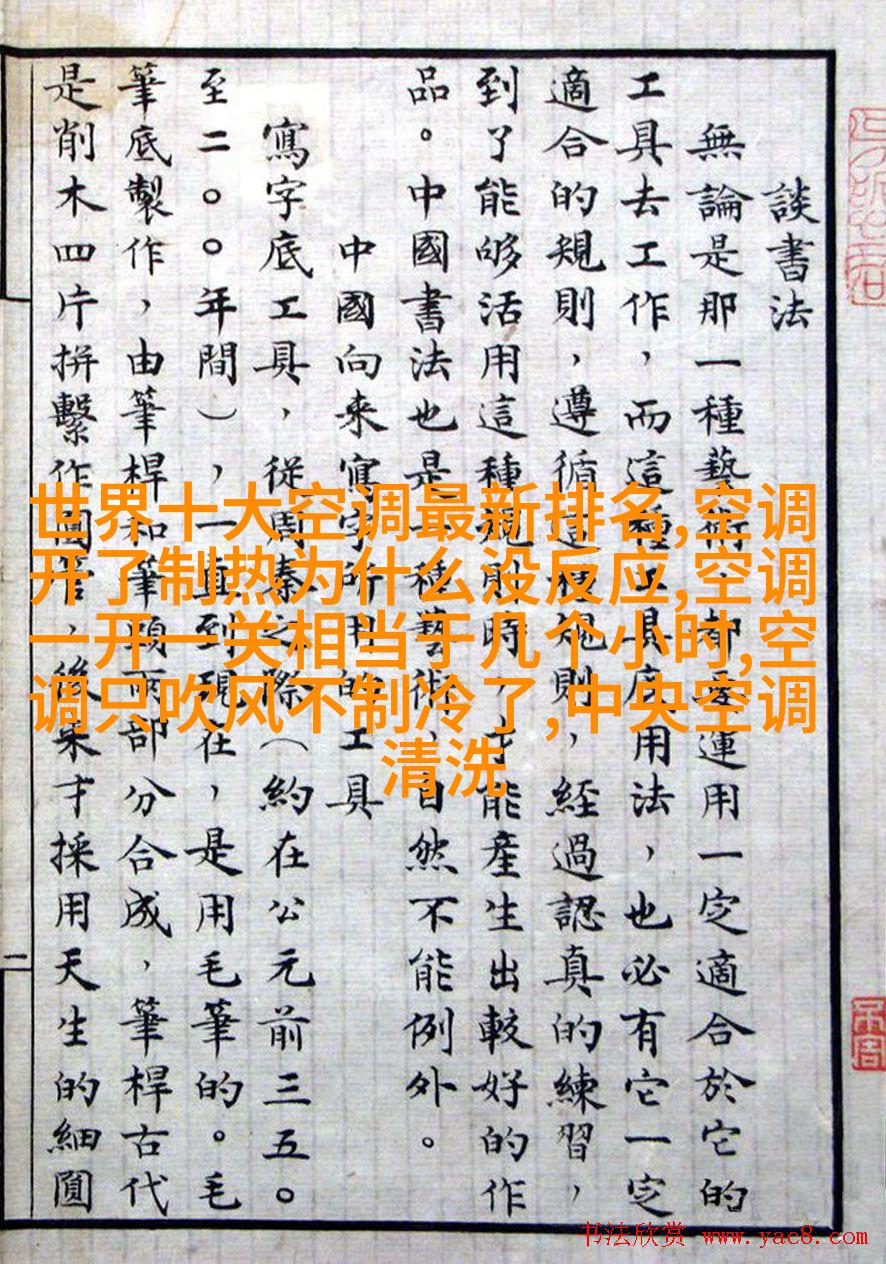 談書法
無論是那一種藝術，都要運用一定適合於它的
工具去工作，而這種工具底用法，也必有它一定
適合的規則，遵循這種規則，經過認真的練習，
到了能够活用這種規則時，才能產生出較好的作
品。中國書法也是一種藝術，自然不能例外。
中國向來寫字所用的工具
寫字底工具，從周秦之際（約在公元前三五〇
至二〇〇年間），一直到現在，是用毛筆的。毛
筆底製作，由筆桿和筆頭兩部分合成，筆桿古代
是削木四片拼繫作圓筒，後來才採用天生的細圓
二
世界十大空调最新排名,空调
开了制热为什么没反应,空调
一开一关相当于几个小时,空
调只吹风不制冷了,中央空调
清洗
书法欣赏 www.yac8.com